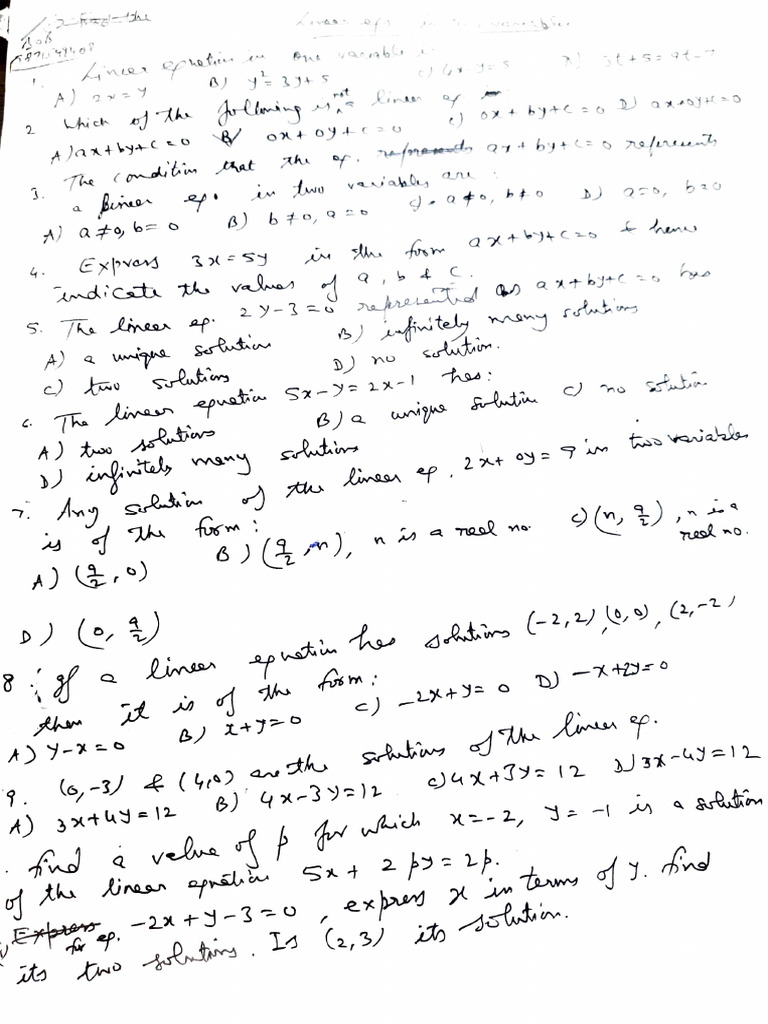 2 Find the
Linear eqs in two variables.
1. Linear equation in one variable is
A) 2x=y B) y²=3y+5 C) 4x-y=5 D) 3t+5=9t-7
2 Which of the following is not linear eq
A) ax+by+c=0 B) 0x+0y+c=0 C) 0x+by+c=0 D) ax+0y+c=0
3. The condition that the eq. ax+by+c=0 represents
a linear eq. in two variables are:
A) a≠0, b=0 B) b≠0, a=0 C) a≠0, b≠0 D) a=0, b=0
4. Express 3x=5y in the form ax+by+c=0 & hence
indicate the values of a, b & c.
5. The linear eq. 2y-3=0 represented as ax+by+c=0 has
A) a unique solution B) infinitely many solutions
C) two solutions D) no solution.
6. The linear equation 5x-y=2x-1 has:
A) two solutions B) a unique solution C) no solution
D) infinitely many solutions
7. Any solution of the linear eq. 2x+0y=9 in two variables
is of the form:
A) (9/2, 0) B) (9/2, n), n is a real no. C) (n, 9/2), n is a real no.
D) (0, 9/2)
8. If a linear equation has solutions (-2,2), (0,0), (2,-2)
then it is of the form:
A) y-x=0 B) x+y=0 C) -2x+y=0 D) -x+2y=0
9. (0,-3) & (4,0) are the solutions of the linear eq.
A) 3x+4y=12 B) 4x-3y=12 C) 4x+3y=12 D) 3x-4y=12
. find a value of p for which x=-2, y=-1 is a solution
of the linear equation 5x+2py=2p.
for eq. -2x+y-3=0, express x in terms of y. find
its two solutions. Is (2,3) its solution.